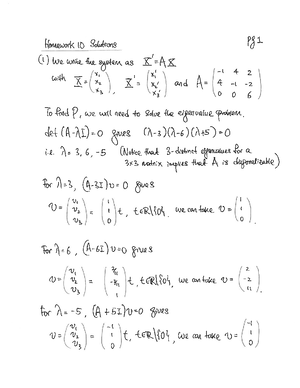 Homework 10 Solutions
Pg 1
(1) We write the system as X' = AX
with X = (x₁ x₂ x₃), X' = (x₁' x₂' x₃') and A = (-1 4 2 / 4 -1 -2 / 0 0 6)
To find P, we will need to solve the eigenvalue problem.
det(A-λI)=0 gives (λ-3)(λ-6)(λ+5)=0
i.e. λ=3, 6, -5 (Notice that 3-distinct eigenvalues for a
3x3 matrix implies that A is diagonalizable)
For λ=3, (A-3I)v=0 gives
v = (v₁ v₂ v₃) = t, t∈R\{0}. we can take v =
For λ=6, (A-6I)v=0 gives
v = (v₁ v₂ v₃) = t, t∈R\{0}, we can take v =
For λ=-5, (A+5I)v=0 gives
v = (v₁ v₂ v₃) = t, t∈R\{0}, we can take v =